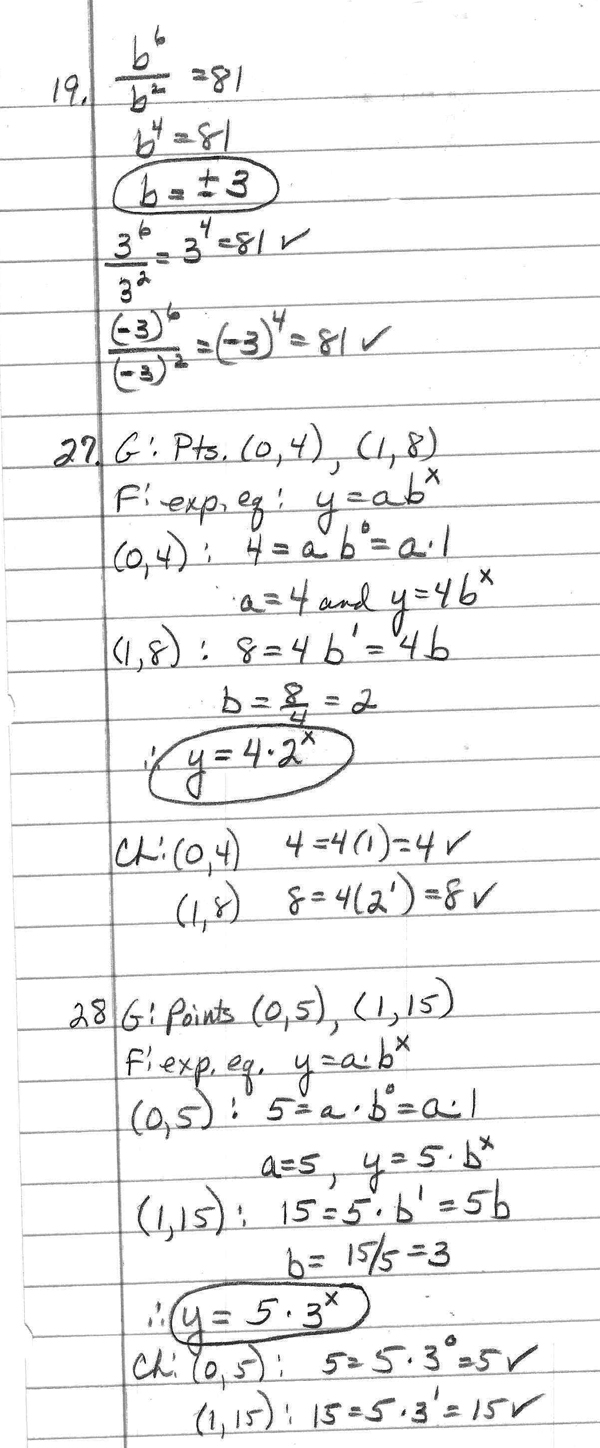 19. b⁶/b² = 81
b⁴ = 81
b = ± 3
3⁶/3² = 3⁴ = 81 ✓
(-3)⁶/(-3)² = (-3)⁴ = 81 ✓
27. G: Pts. (0,4), (1,8)
F: exp. eq: y = abˣ
(0,4): 4 = a b⁰ = a·1
a = 4 and y = 4bˣ
(1,8): 8 = 4b¹ = 4b
b = 8/4 = 2
∴ y = 4·2ˣ
Ch: (0,4) 4 = 4(1) = 4 ✓
(1,8) 8 = 4(2¹) = 8 ✓
28 G: Points (0,5), (1,15)
F: exp. eq. y = a·bˣ
(0,5): 5 = a·b⁰ = a·1
a = 5, y = 5·bˣ
(1,15): 15 = 5·b¹ = 5b
b = 15/5 = 3
∴ y = 5·3ˣ
Ch: (0,5): 5 = 5·3⁰ = 5 ✓
(1,15): 15 = 5·3¹ = 15 ✓